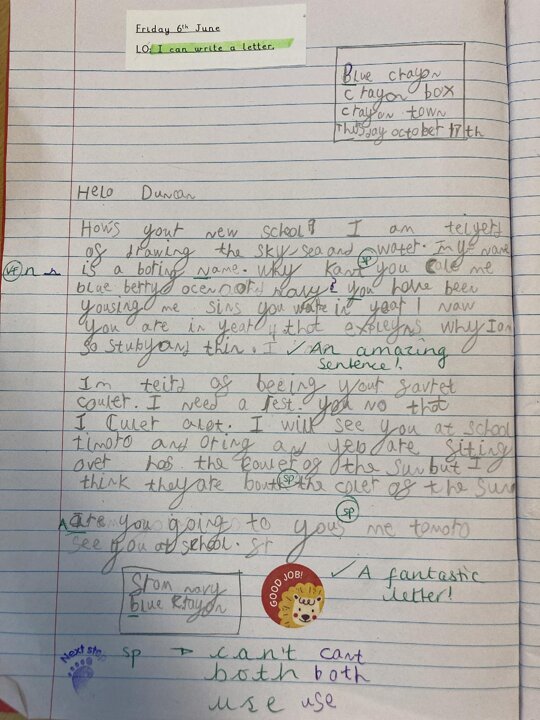 Friday 6th June
LO: I can write a letter.
Blue crayon
crayon box
crayon town
Thursday october 17th
Helo Duncan
How's your new school? I am teiyerd
of drawing the sky sea and water. my name
sp
ve n
is a boring name. why kant you cole me
blue berry ocean or navy? you have been
yousing me sins you ware in year 1 now
you are in year 4 that expleyns why I am
so stuby and thin. I ✓ An amazing
sentence!
Im teird of beeing your favret
couler. I need a rest. you no that
I Culer alot. I will see you at school
timoro and oring and yelo are siting
over hos the couler of the sun but I
think they are bouth the coler of the sun
sp
sp
Are you going to yous me tomoro
see you at school.
From navy
blue Krayon
GOOD JOB!
✓ A fantastic
letter!
Next step
sp → can't cant
both both
use use